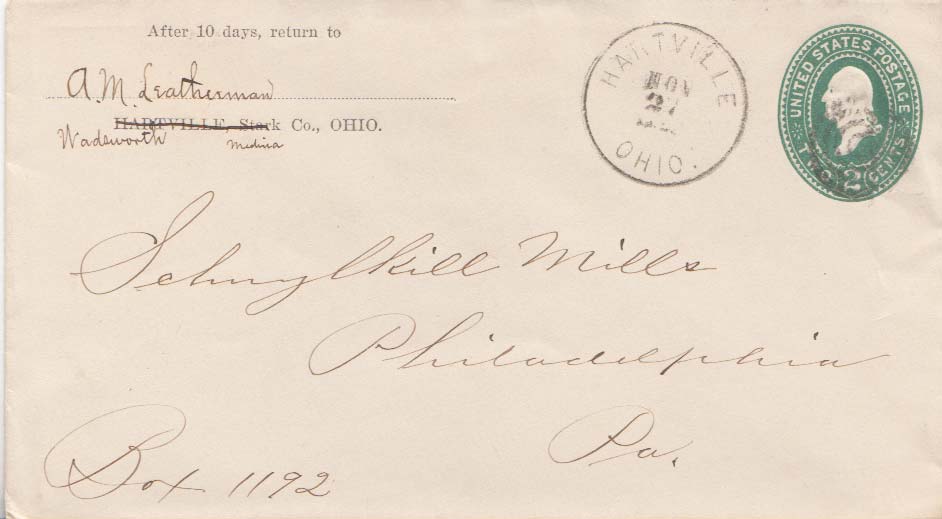 After 10 days, return to
A. M. Leatherman
HARTVILLE, Stark Co., OHIO.
Wadsworth Medina
HARTVILLE
NOV
27
OHIO.
UNITED STATES POSTAGE
TWO 2 CENTS
Schuylkill Mills
Philadelphia
Pa.
Box 1192